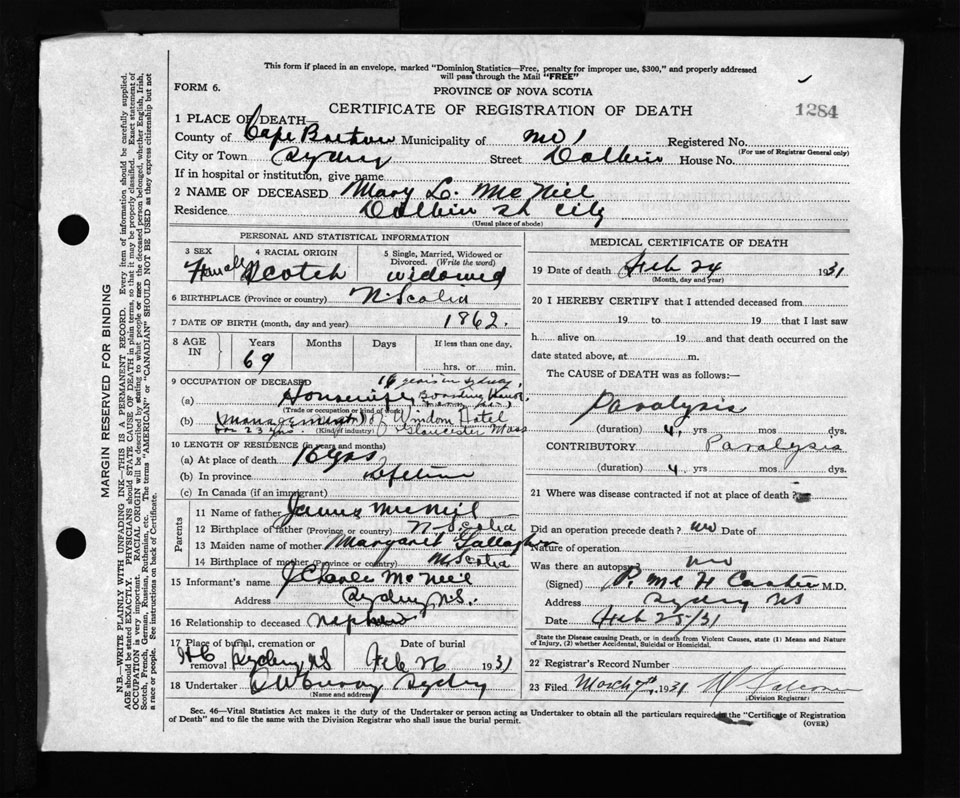 This form if placed in an envelope, marked "Dominion Statistics—Free, penalty for improper use, $300," and properly addressed
will pass through the Mail "FREE"
FORM 6.
PROVINCE OF NOVA SCOTIA
CERTIFICATE OF REGISTRATION OF DEATH
1284
1 PLACE OF DEATH—
County of Cape Breton Municipality of Registered No.
(For use of Registrar General only)
City or Town Sydney Street House No.
If in hospital or institution, give name
2 NAME OF DECEASED Mary L. McNiel
Residence St City
(Usual place of abode)
PERSONAL AND STATISTICAL INFORMATION
3 SEX Female
4 RACIAL ORIGIN Scotch
5 Single, Married, Widowed or Divorced. (Write the word) widowed
6 BIRTHPLACE (Province or country) N. Scotia
7 DATE OF BIRTH (month, day and year) 1862.
8 AGE IN Years Months Days If less than one day,
69 hrs. or min.
9 OCCUPATION OF DECEASED 16 years in Sydney,
(a) Housewife Boarding House
(Trade or occupation or kind of work)
(b) management of Hotel
for 23 yrs. (Kind of industry) Gloucester Mass
10 LENGTH OF RESIDENCE (in years and months)
(a) At place of death 16 yrs
(b) In province Lifetime
(c) In Canada (if an immigrant)
Parents
11 Name of father James McNeil
12 Birthplace of father (Province or country) N. Scotia
13 Maiden name of mother Margaret Gallagher
14 Birthplace of mother (Province or country) N Scotia
15 Informant's name J Charles McNeil
Address Sydney N.S.
16 Relationship to deceased nephew
17 Place of burial, cremation or removal H C Sydney NS
Date of burial Feb 26 1931
18 Undertaker Sydney
(Name and address)
MEDICAL CERTIFICATE OF DEATH
19 Date of death Feb 24 1931
(Month, day and year)
20 I HEREBY CERTIFY that I attended deceased from
19 to 19 that I last saw
h alive on 19 and that death occurred on the
date stated above, at m.
The CAUSE OF DEATH was as follows:—
Paralysis
(duration) 4, yrs mos dys.
CONTRIBUTORY Paralysis
(duration) 4 yrs mos dys.
21 Where was disease contracted if not at place of death?
Did an operation precede death? no Date of
Nature of operation
Was there an autopsy? no
(Signed) M.D.
Address Sydney NS
Date Feb 25/31
State the Disease causing Death, or in death from Violent Causes, state (1) Means and Nature
of Injury, (2) whether Accidental, Suicidal or Homicidal.
22 Registrar's Record Number
23 Filed March 7th, 1931
(Division Registrar)
Sec. 46—Vital Statistics Act makes it the duty of the Undertaker or person acting as Undertaker to obtain all the particulars required in the "Certificate of Registration
of Death" and to file the same with the Division Registrar who shall issue the burial permit.
(OVER)
MARGIN RESERVED FOR BINDING
N.B.—WRITE PLAINLY WITH UNFADING INK—THIS IS A PERMANENT RECORD. Every item of information should be carefully supplied.
AGE should be stated EXACTLY. PHYSICIANS should STATE CAUSE OF DEATH in plain terms, so that it may be properly classified. Exact statement of
OCCUPATION is very important. RACIAL ORIGIN will be described by stating to what people or race the deceased person belonged, whether English, Irish,
Scotch, French, German, Russian, Ruthenian, etc. The terms "AMERICAN" or "CANADIAN" SHOULD NOT BE USED as they express citizenship but not
a race or people. See instructions on back of Certificate.